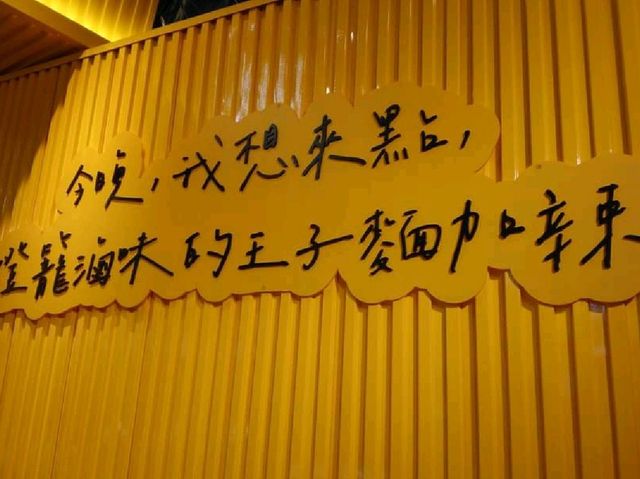 今晚,我想來點,
燈籠滷味的王子麵加辣